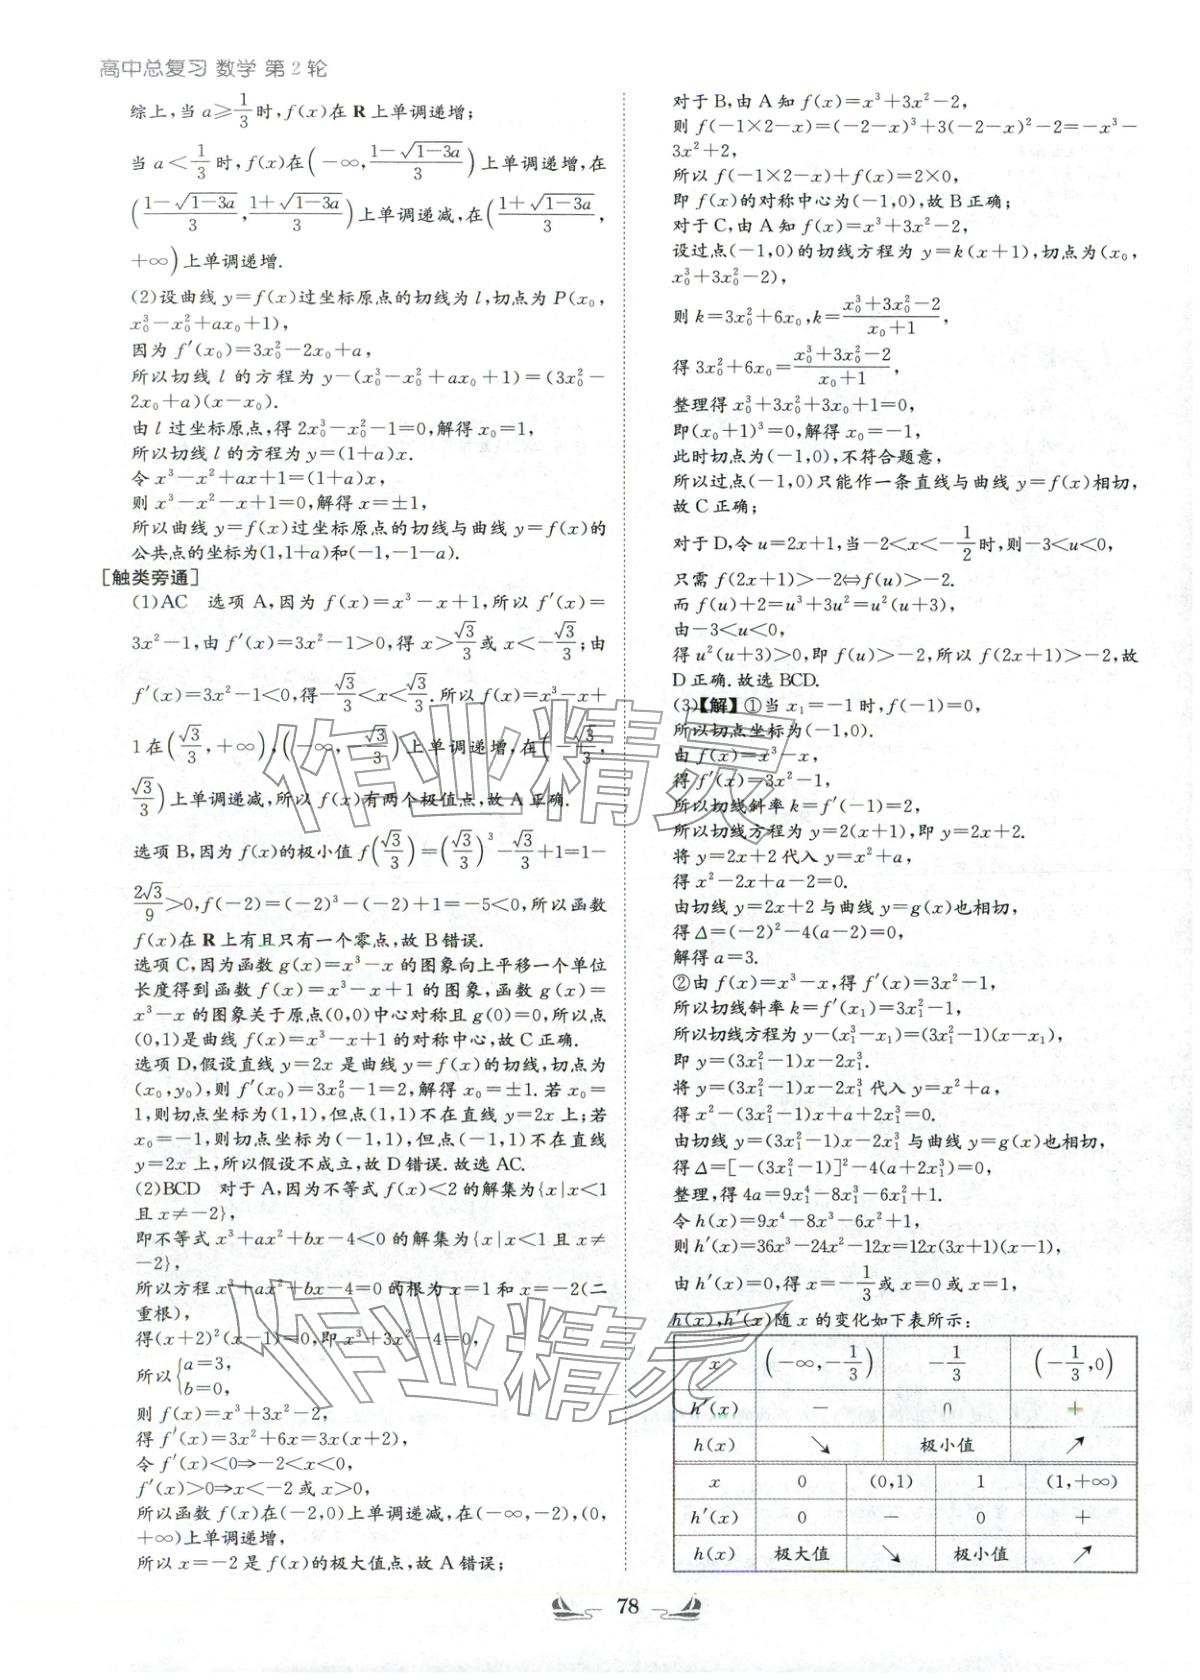 高中总复习 数学 第2轮
综上,当 a≥1/3 时,f(x)在 R 上单调递增;
当 a<1/3 时,f(x)在(-∞,(1-√(1-3a))/3)上单调递增,在
((1-√(1-3a))/3,(1+√(1-3a))/3)上单调递减,在((1+√(1-3a))/3,
+∞)上单调递增.
(2)设曲线 y=f(x)过坐标原点的切线为 l,切点为 P(x₀,
x₀³-x₀²+ax₀+1),
因为 f′(x₀)=3x₀²-2x₀+a,
所以切线 l 的方程为 y-(x₀³-x₀²+ax₀+1)=(3x₀²-
2x₀+a)(x-x₀).
由 l 过坐标原点,得 2x₀³-x₀²-1=0,解得 x₀=1,
所以切线 l 的方程为 y=(1+a)x.
令 x³-x²+ax+1=(1+a)x,
则 x³-x²-x+1=0,解得 x=±1,
所以曲线 y=f(x)过坐标原点的切线与曲线 y=f(x)的
公共点的坐标为(1,1+a)和(-1,-1-a).
[触类旁通]
(1)AC 选项 A,因为 f(x)=x³-x+1,所以 f′(x)=
3x²-1,由 f′(x)=3x²-1>0,得 x>√3/3或 x<-√3/3;由
f′(x)=3x²-1<0,得-√3/3<x<√3/3.所以 f(x)=x³-x+
1在(√3/3,+∞),(-∞,-√3/3)上单调递增,在(-√3/3,
√3/3)上单调递减,所以 f(x)有两个极值点,故 A 正确.
选项 B,因为 f(x)的极小值 f(√3/3)=(√3/3)³-√3/3+1=1-
2√3/9>0,f(-2)=(-2)³-(-2)+1=-5<0,所以函数
f(x)在 R 上有且只有一个零点,故 B 错误.
选项 C,因为函数 g(x)=x³-x 的图象向上平移一个单位
长度得到函数 f(x)=x³-x+1 的图象,函数 g(x)=
x³-x 的图象关于原点(0,0)中心对称且 g(0)=0,所以点
(0,1)是曲线 f(x)=x³-x+1 的对称中心,故 C 正确.
选项 D,假设直线 y=2x 是曲线 y=f(x)的切线,切点为
(x₀,y₀),则 f′(x₀)=3x₀²-1=2,解得 x₀=±1.若 x₀=
1,则切点坐标为(1,1),但点(1,1)不在直线 y=2x 上;若
x₀=-1,则切点坐标为(-1,1),但点(-1,1)不在直线
y=2x 上,所以假设不成立,故 D 错误.故选 AC.
(2)BCD 对于 A,因为不等式 f(x)<2 的解集为{x|x<1
且 x≠-2},
即不等式 x³+ax²+bx-4<0 的解集为{x|x<1 且 x≠
-2},
所以方程 x³+ax²+bx-4=0 的根为 x=1 和 x=-2(二
重根),
得(x+2)²(x-1)=0,即 x³+3x²-4=0,
所以{a=3,
b=0,
则 f(x)=x³+3x²-2,
得 f′(x)=3x²+6x=3x(x+2),
令 f′(x)<0⇒-2<x<0,
f′(x)>0⇒x<-2 或 x>0,
所以函数 f(x)在(-2,0)上单调递减,在(-∞,-2),(0,
+∞)上单调递增,
所以 x=-2 是 f(x)的极大值点,故 A 错误;
对于 B,由 A 知 f(x)=x³+3x²-2,
则 f(-1×2-x)=(-2-x)³+3(-2-x)²-2=-x³-
3x²+2,
所以 f(-1×2-x)+f(x)=2×0,
即 f(x)的对称中心为(-1,0),故 B 正确;
对于 C,由 A 知 f(x)=x³+3x²-2,
设过点(-1,0)的切线方程为 y=k(x+1),切点为(x₀,
x₀³+3x₀²-2),
则 k=3x₀²+6x₀,k=(x₀³+3x₀²-2)/(x₀+1),
得 3x₀²+6x₀=(x₀³+3x₀²-2)/(x₀+1),
整理得 x₀³+3x₀²+3x₀+1=0,
即(x₀+1)³=0,解得 x₀=-1,
此时切点为(-1,0),不符合题意,
所以过点(-1,0)只能作一条直线与曲线 y=f(x)相切,
故 C 正确;
对于 D,令 u=2x+1,当-2<x<-1/2时,则-3<u<0,
只需 f(2x+1)>-2⇔f(u)>-2.
而 f(u)+2=u³+3u²=u²(u+3),
由-3<u<0,
得 u²(u+3)>0,即 f(u)>-2,所以 f(2x+1)>-2,故
D 正确.故选 BCD.
(3)【解】①当 x₁=-1 时,f(-1)=0,
所以切点坐标为(-1,0).
由 f(x)=x³-x,
得 f′(x)=3x²-1,
所以切线斜率 k=f′(-1)=2,
所以切线方程为 y=2(x+1),即 y=2x+2.
将 y=2x+2 代入 y=x²+a,
得 x²-2x+a-2=0.
由切线 y=2x+2 与曲线 y=g(x)也相切,
得 Δ=(-2)²-4(a-2)=0,
解得 a=3.
②由 f(x)=x³-x,得 f′(x)=3x²-1,
所以切线斜率 k=f′(x₁)=3x₁²-1,
所以切线方程为 y-(x₁³-x₁)=(3x₁²-1)(x-x₁),
即 y=(3x₁²-1)x-2x₁³.
将 y=(3x₁²-1)x-2x₁³ 代入 y=x²+a,
得 x²-(3x₁²-1)x+a+2x₁³=0.
由切线 y=(3x₁²-1)x-2x₁³ 与曲线 y=g(x)也相切,
得 Δ=[-(3x₁²-1)]²-4(a+2x₁³)=0,
整理,得 4a=9x₁⁴-8x₁³-6x₁²+1.
令 h(x)=9x⁴-8x³-6x²+1,
则 h′(x)=36x³-24x²-12x=12x(3x+1)(x-1),
由 h′(x)=0,得 x=-1/3或 x=0 或 x=1,
h(x),h′(x)随 x 的变化如下表所示:
x (-∞,-1/3) -1/3 (-1/3,0)
h′(x) - 0 +
h(x) ↘ 极小值 ↗
x 0 (0,1) 1 (1,+∞)
h′(x) 0 - 0 +
h(x) 极大值 ↘ 极小值 ↗
78
作业精灵
作业精灵